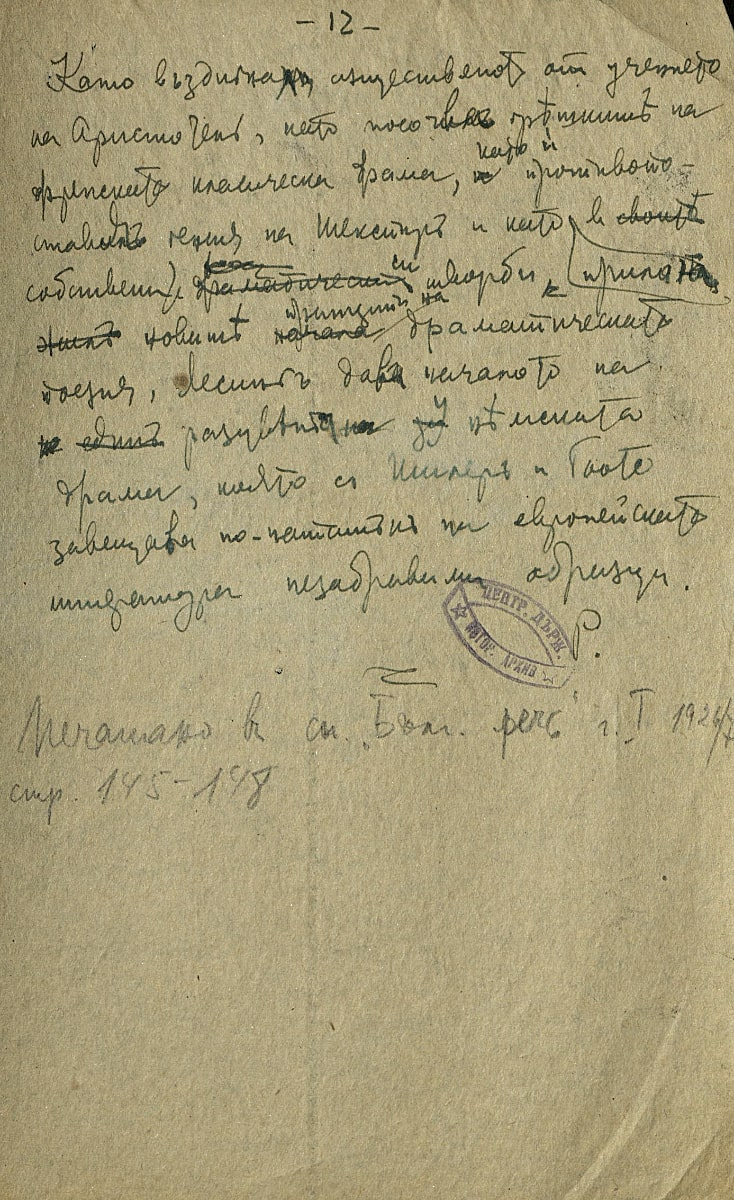 - 12 -
Като въздигна същественото от учението
на Аристотель, като посочи грѣшкитѣ на
френската класическа драма, като ѝ противопо-
стави гения на Шекспиръ и като въ своитѣ
собствени драматически си творби прило-
жи новитѣ начала принципи на драматическата
поезия, Лесингъ дава началото на
единъ разцвѣтъ на нѣмската
драма, която съ Шилеръ и Гьоте
завещава по-нататъкъ на европейската
литература незабравими образци.
Р.
ЦЕНТР. ДЪРЖ.
ИСТОР. АРХИВ
Печатано в сп. „Бълг. речь" г. I 1926/7
стр. 145-148